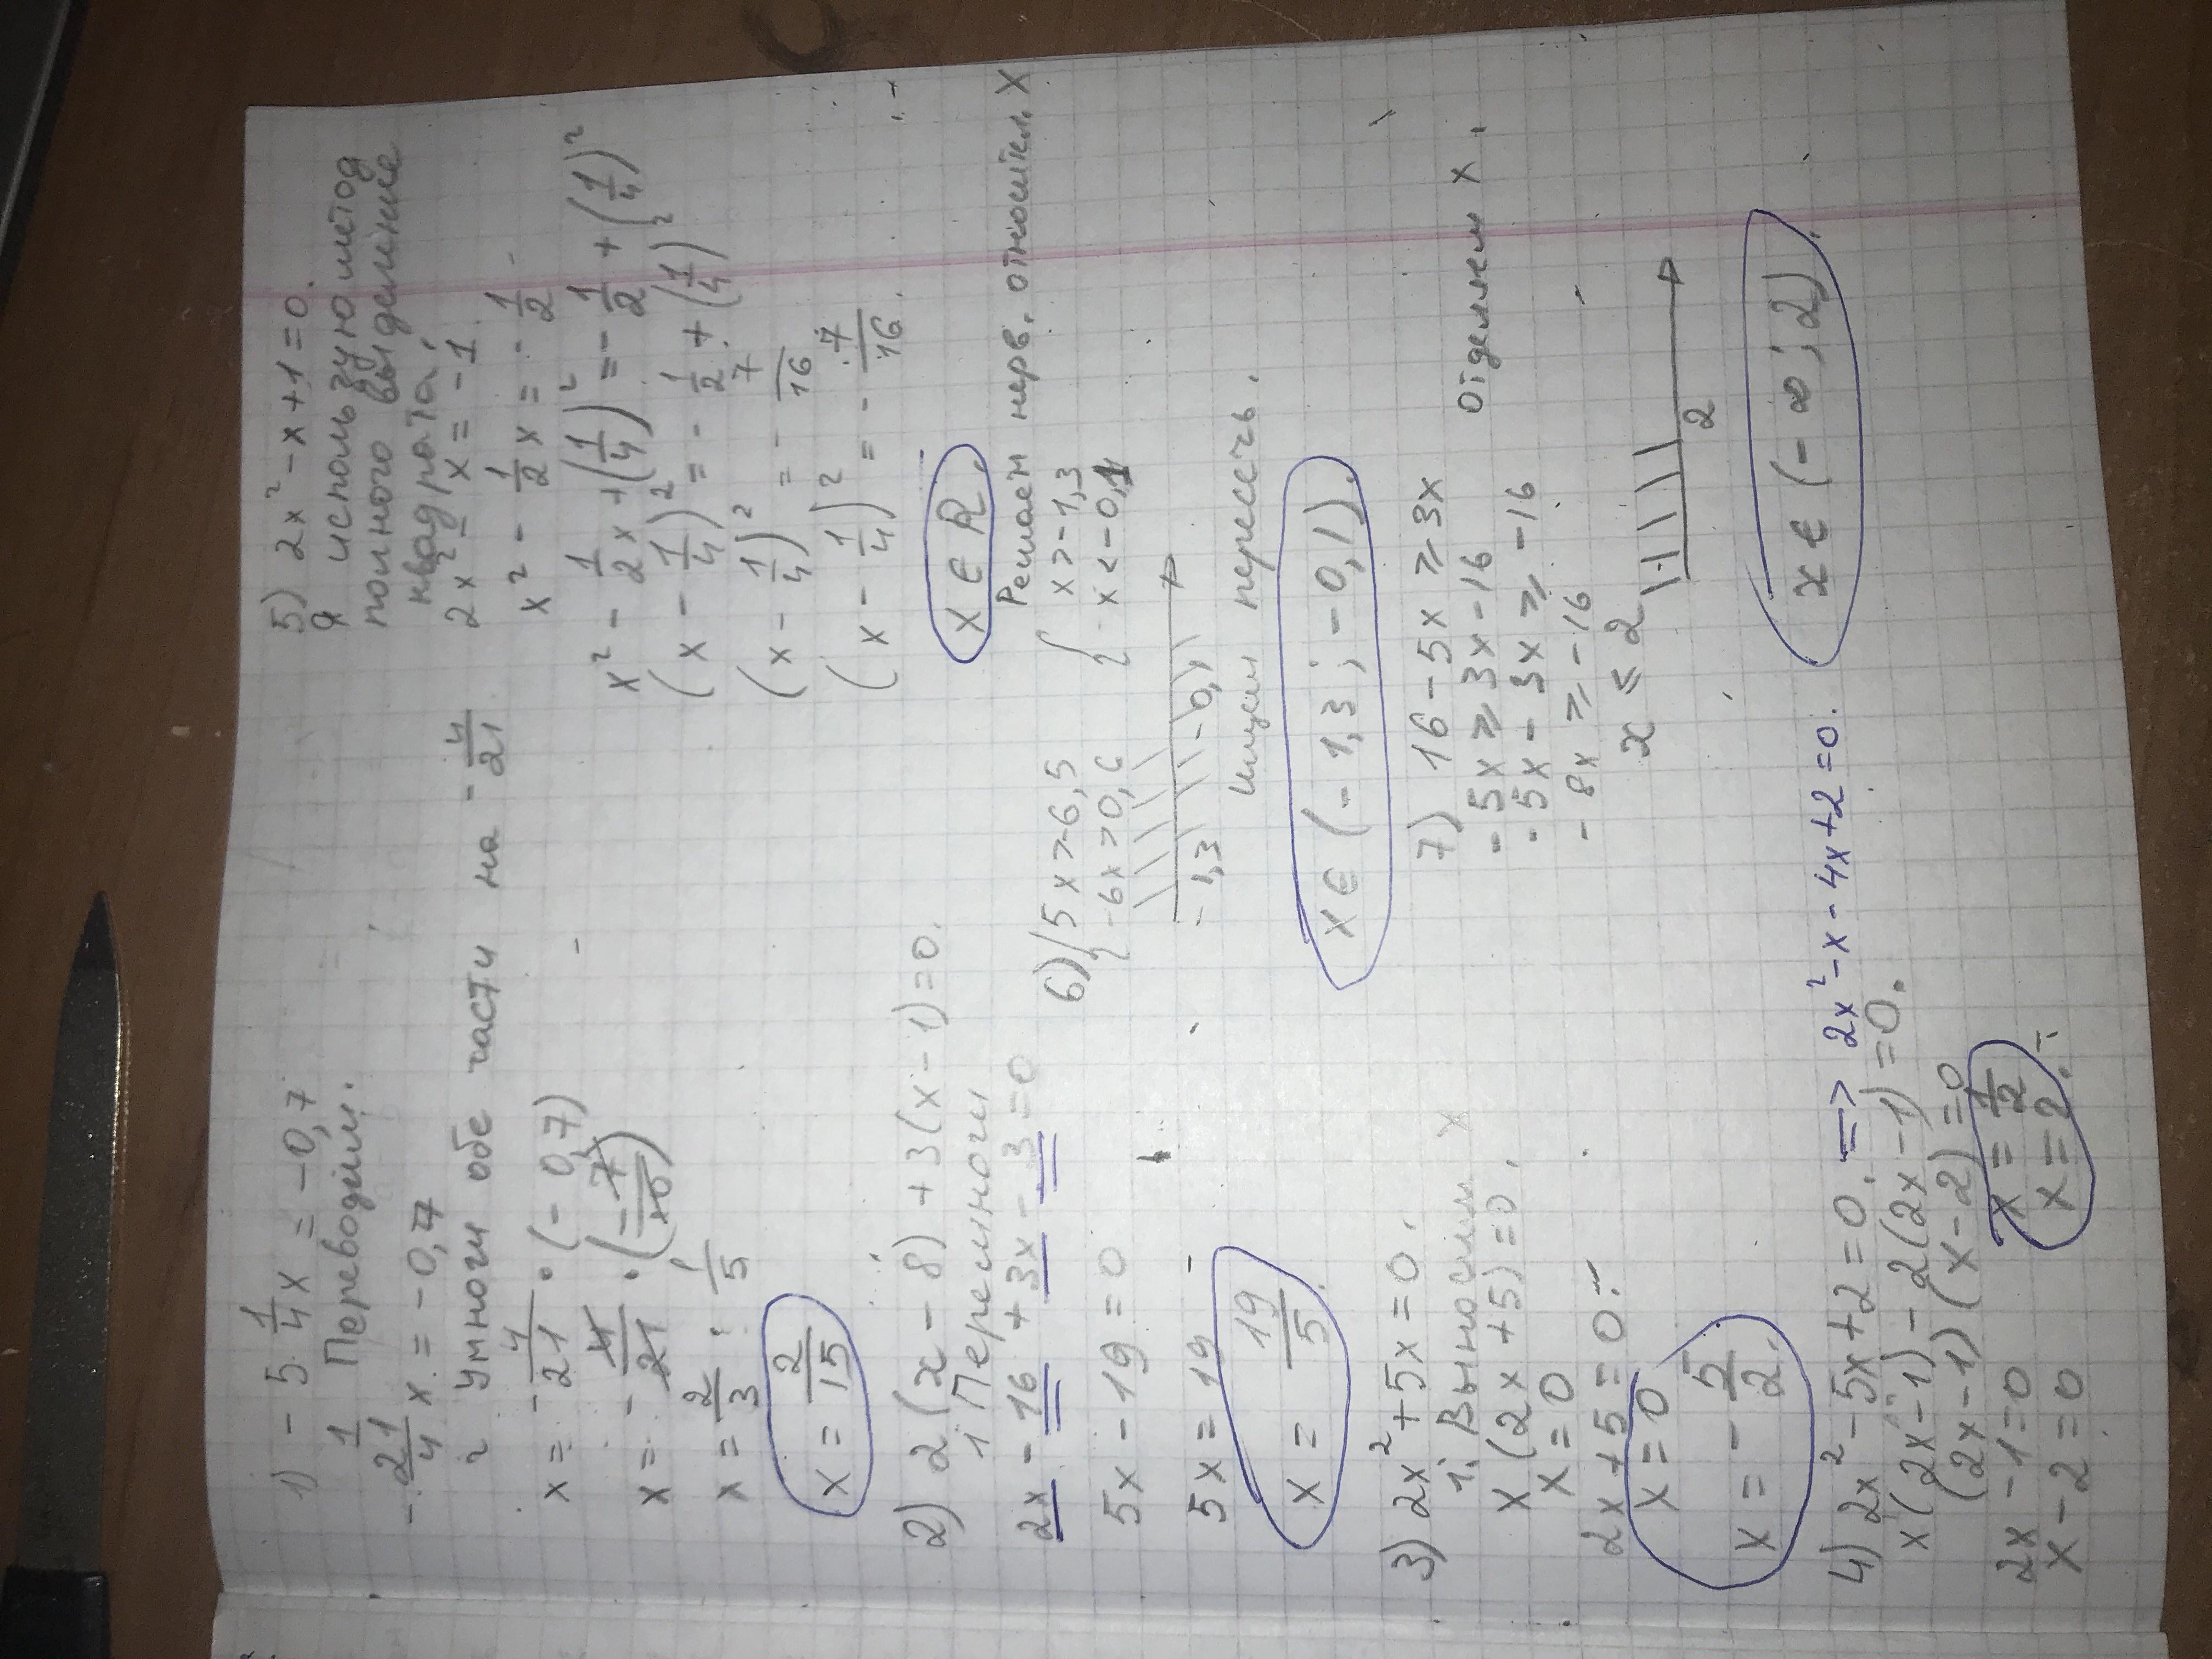 1) - 5 1/4 x = -0,7
1 Переводим.
- 21/4 x = -0,7
2 Умножи обе части на - 4/21
x = - 4/21 · (-0,7)
x = - 4/21 · (-7/10)
x = 2/3 · 1/5
x = 2/15
2) 2(x-8)+3(x-1)=0.
1 Перемножи
2x - 16 + 3x - 3 = 0
5x - 19 = 0
5x = 19
x = 19/5.
3) 2x²+5x=0.
1. Выносим x
x(2x+5)=0.
x=0
2x+5=0
x=0
x = - 5/2.
4) 2x²-5x+2=0. => 2x²-x-4x+2=0.
x(2x-1)-2(2x-1)=0.
(2x-1)(x-2)=0
2x-1=0
x-2=0
x = 1/2
x = 2.
5) 2x²-x+1=0.
Я использую метод
полного выделение
квадрата.
2x² - x = -1.
x² - 1/2 x = - 1/2
x² - 1/2 x + (1/4)² = - 1/2 + (1/4)²
(x - 1/4)² = - 1/2 + (1/4)²
(x - 1/4)² = - 7/16
(x - 1/4)² = - 7/16.
x ∈ R.
6) { 5x > -6,5
{ -6x > 0,6
Решаем нерв. относител. X
{ x > -1,3
x < -0,1
-1,3 -0,1
Ищем пересечь.
x ∈ (-1,3 ; -0,1).
7) 16 - 5x ⩾ 3x
-5x ⩾ 3x - 16 отделяем x.
-5x - 3x ⩾ -16
-8x ⩾ -16
x ⩽ 2
2
x ∈ (-∞ ; 2).